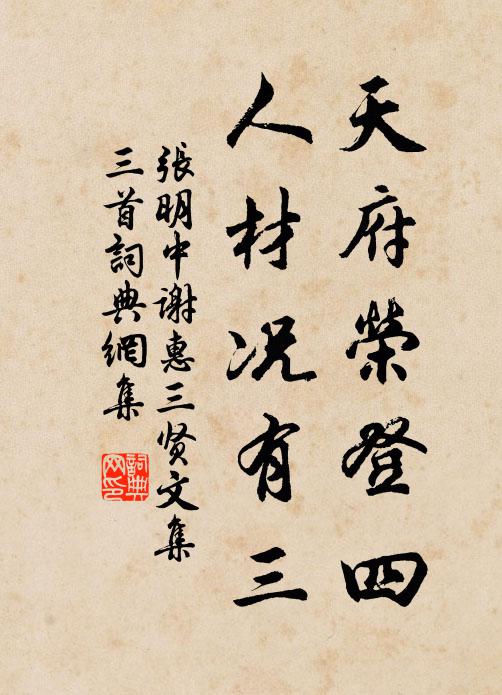 天府榮登四
人材况有三
張明中谢惠三贤文集
三首詞典網集
詞典网印